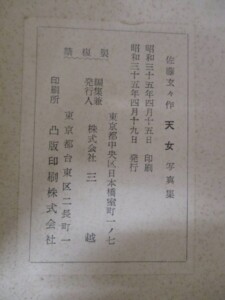 佐藤玄々作 天女 写真集
昭和三十五年四月十五日 印刷
昭和三十五年四月十九日 発行
東京都中央区日本橋室町一ノ七
編集兼発行人 株式会社 三越
東京都台東区二長町一
印刷所 凸版印刷株式会社